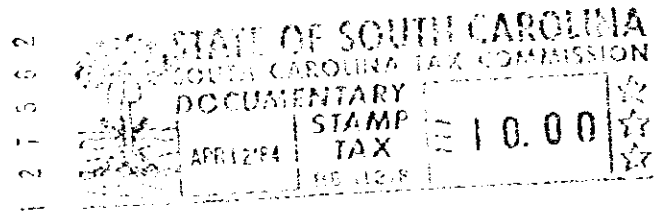 STATE OF SOUTH CAROLINA
SOUTH CAROLINA TAX COMMISSION
DOCUMENTARY
STAMP
TAX
APR 12 '84
10.00